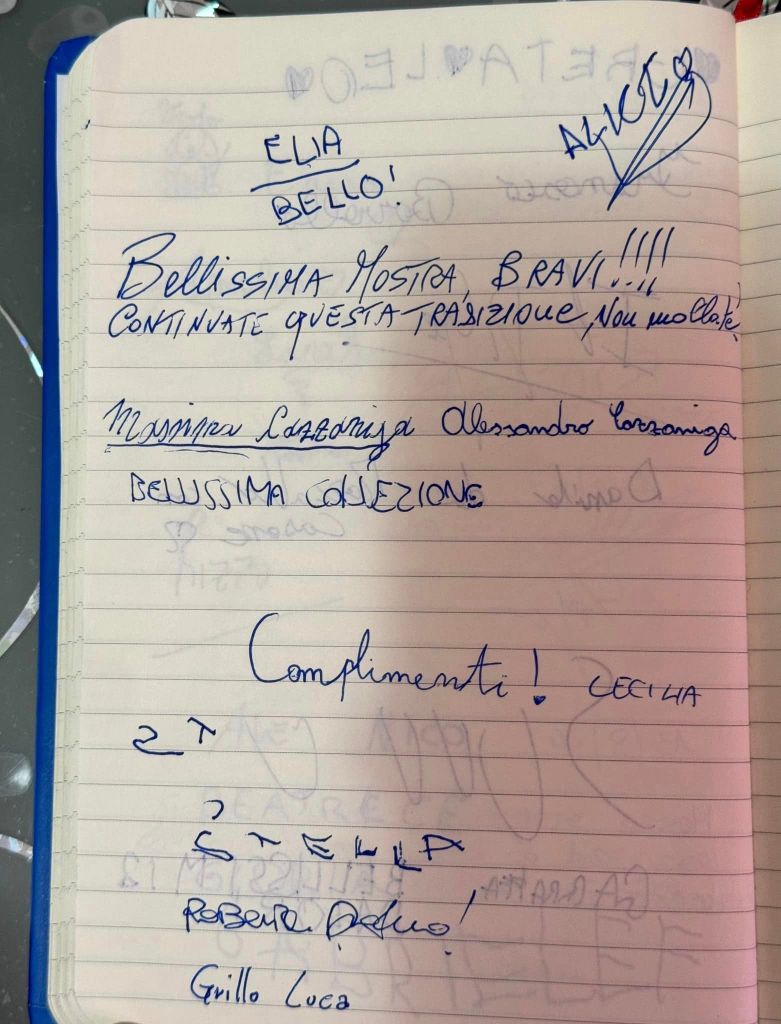 ELIA
BELLO!
BELLISSIMA MOSTRA, BRAVI!!!!
CONTINUATE QUESTA TRADIZIONE, Non mollate
Lazzaniga Alessandro Lazzaniga
BELLISSIMA COLLEZIONE
Complimenti! CECILIA
STELLA
Roberta
Grillo Luca